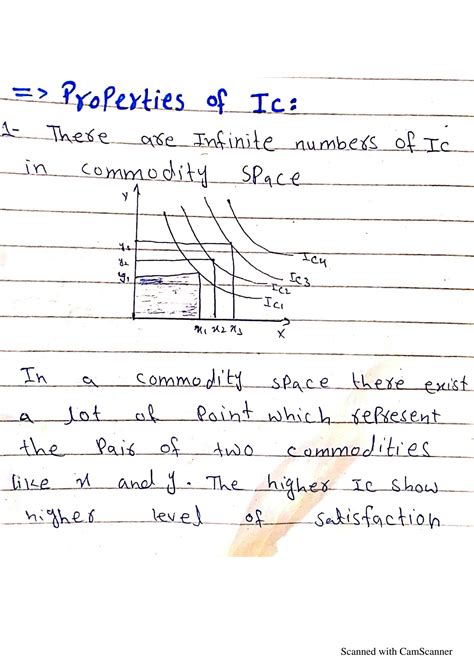 => Properties of Ic:
1- There are Infinite numbers of Ic
in commodity space
Y
y3
y2
y1
IC4
IC3
IC2
IC1
x1 x2 x3
X
In a commodity space there exist
a lot of Point which represent
the Pair of two commodities
like x and y. The higher Ic show
higher level of satisfaction
Scanned with CamScanner